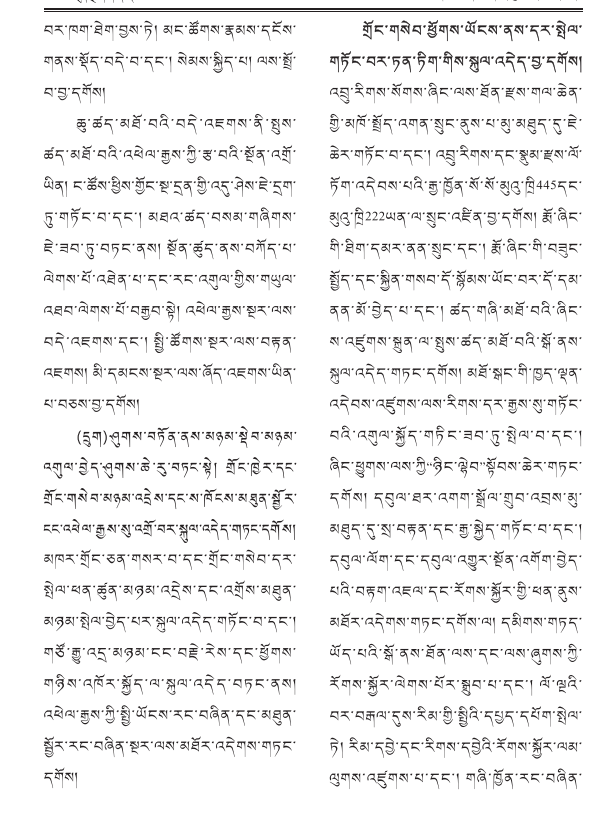 བར་ཁག་ཐེག་བྱས་ཏེ། མང་ཚོགས་རྣམས་དངོས་
གནས་སྡོད་བདེ་བ་དང་། སེམས་སྐྱིད་པ། ལས་སྤྲོ་
བ་བྱ་དགོས།
ཆུ་ཚད་མཐོ་བའི་བདེ་འཇགས་ནི་སྤུས་
ཚད་མཐོ་བའི་འཕེལ་རྒྱས་ཀྱི་རྩ་བའི་སྔོན་འགྲོ་
ཡིན། ང་ཚོས་ཕྱིས་གྱོང་སྔ་དྲན་གྱི་འདུ་ཤེས་ཇེ་དྲག་
ཏུ་གཏོང་བ་དང་། མཐའ་ཚད་བསམ་གཞིགས་
ཇེ་ཟབ་ཏུ་བཏང་ནས། སྔོན་ཚུད་ནས་བཀོད་པ་
ལེགས་པོ་འཐེན་པ་དང་རང་འགུལ་གྱིས་གཡུལ་
འཐབ་ལེགས་པོ་བརྒྱབ་སྟེ། འཕེལ་རྒྱས་སྔར་ལས་
བདེ་འཇགས་དང་། སྤྱི་ཚོགས་སྔར་ལས་བརྟན་
འཇགས། མི་དམངས་སྔར་ལས་ཞོད་འཇགས་ཡིན་
པ་བཅས་བྱ་དགོས།
(དྲུག)ཤུགས་བཏོན་ནས་མཉམ་སྡེབ་མཉམ་
འགུལ་བྱེད་ཤུགས་ཆེ་རུ་བཏང་སྟེ། གྲོང་ཁྱེར་དང་
གྲོང་གསེབ་མཉམ་འདྲེས་དང་ས་ཁོངས་མཐུན་སྦྱོར་
ངང་འཕེལ་རྒྱས་སུ་འགྲོ་བར་སྐུལ་འདེད་གཏང་དགོས།
མཁར་གྲོང་ཅན་གསར་བ་དང་གྲོང་གསེབ་དར་
སྤེལ་ཕན་ཚུན་མཉམ་འདྲེས་དང་འགྲོས་མཐུན་
མཉམ་སྤེལ་བྱེད་པར་སྐུལ་འདེད་གཏོང་བ་དང་།
གཙོ་རྒྱུ་འདྲ་མཉམ་ངང་བརྗེ་རེས་དང་ཕྱོགས་
གཉིས་འཁོར་སྐྱོད་ལ་སྐུལ་འདེད་བཏང་ནས།
འཕེལ་རྒྱས་ཀྱི་སྤྱི་ཡོངས་རང་བཞིན་དང་མཐུན་
སྦྱོར་རང་བཞིན་སྔར་ལས་མཐོར་འདེགས་གཏང་
དགོས།
གྲོང་གསེབ་ཕྱོགས་ཡོངས་ནས་དར་སྤེལ་
གཏོང་བར་ཏན་ཏིག་གིས་སྐུལ་འདེད་བྱ་དགོས།
འབྲུ་རིགས་སོགས་ཞིང་ལས་ཐོན་རྫས་གལ་ཆེན་
གྱི་མཁོ་སྤྲོད་འགན་སྲུང་ནུས་པ་མུ་མཐུད་དུ་ཇེ་
ཆེར་གཏོང་བ་དང་། འབྲུ་རིགས་དང་སྣུམ་རྫས་ལོ་
ཏོག་འདེབས་པའི་རྒྱ་ཁྱོན་སོ་སོ་མུའུ་ཁྲི445དང་
མུའུ་ཁྲི222ཡན་ལ་སྲུང་འཛིན་བྱ་དགོས། རྨོ་ཞིང་
གི་ཐིག་དམར་ནན་སྲུང་དང་། རྨོ་ཞིང་གི་བཟུང་
སྤྱོད་དང་སྐྱིན་གསབ་དོ་སྙོམས་ཡོང་བར་དོ་དམ་
ནན་མོ་བྱེད་པ་དང་། ཚད་གཞི་མཐོ་བའི་ཞིང་
ས་འཛུགས་སྐྲུན་ལ་སྤུས་ཚད་མཐོ་བའི་སྒོ་ནས་
སྐུལ་འདེད་གཏང་དགོས། མཐོ་སྒང་གི་ཁྱད་ལྡན་
འདེབས་འཛུགས་ལས་རིགས་དར་རྒྱས་སུ་གཏོང་
བའི་འགུལ་སྐྱོད་གཏིང་ཟབ་ཏུ་སྤེལ་བ་དང་།
ཞིང་ཕྱུགས་ལས་ཀྱི“ཉིང་ལྟེབ”སྟོབས་ཆེར་གཏང་
དགོས། དབུལ་ཐར་འགག་སྒྲོལ་གྲུབ་འབྲས་མུ་
མཐུད་དུ་སྲ་བརྟན་དང་རྒྱ་སྐྱེད་གཏོང་བ་དང་།
དབུལ་ལོག་དང་དབུལ་འགྱུར་སྔོན་འགོག་བྱེད་
པའི་བརྟག་འཇལ་དང་རོགས་སྐྱོར་གྱི་ཕན་ནུས་
མཐོར་འདེགས་གཏང་དགོས་ལ། དམིགས་གཏད་
ཡོད་པའི་སྒོ་ནས་ཐོན་ལས་དང་ལས་ཞུགས་ཀྱི་
རོགས་སྐྱོར་ལེགས་པོར་སྒྲུབ་པ་དང་། ལོ་ལྔའི་
བར་བརྒལ་དུས་རིམ་གྱི་སྤྱིའི་དཔྱད་དཔོག་སྤེལ་
ཏེ། རིམ་དབྱེ་དང་རིགས་དབྱེའི་རོགས་སྐྱོར་ལམ་
ལུགས་འཛུགས་པ་དང་། གཞི་ཁྱོན་རང་བཞིན་